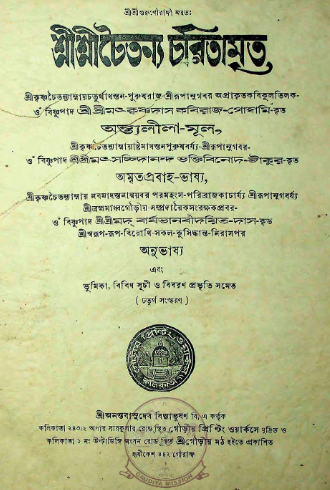 শ্রীশ্রীগুরুগৌরাঙ্গৌ জয়তঃ
শ্রীশ্রীচৈতন্য চরিতামৃত
শ্রীকৃষ্ণচৈতন্যাম্নায়চতুর্থাধস্তন-পুরুষরাজ-শ্রীরূপানুগবর অপ্রাকৃতকবিকুলতিলক-
ওঁ বিষ্ণুপাদ শ্রীশ্রীমৎ কৃষ্ণদাস কবিরাজ-গোস্বামি-কৃত
অন্ত্যলীলা-মূল,
শ্রীকৃষ্ণচৈতন্যাম্নায়াষ্টমাধস্তনপুরুষবর্য্য-শ্রীরূপানুগবর-
ওঁ বিষ্ণুপাদ শ্রীশ্রীমৎ সচ্চিদানন্দ ভক্তিবিনোদ-ঠাকুর-কৃত
অমৃতপ্রবাহ-ভাষ্য,
শ্রীকৃষ্ণচৈতন্যাম্নায় নবমাধস্তনান্বয়বর পরমহংস-পরিব্রাজকাচার্য্য শ্রীরূপানুগবর্য্য
শ্রীব্রহ্মমাধ্বগৌড়ীয়-সম্প্রদায়ৈকসংরক্ষকপ্রবর-
ওঁ বিষ্ণুপাদ শ্রীশ্রীমদ্ বার্ষভানবীদয়িত-দাস-কৃত
শ্রীস্বরূপ-রূপ-বিরোধি-সকল-কুসিদ্ধান্ত-নিরাসপর
অনুভাষ্য
এবং
ভূমিকা, বিবিধ সূচী ও বিবরণ প্রভৃতি সমেত
(চতুর্থ সংস্করণ)
শ্রীঅনন্তবাসুদেব বিদ্যাভূষণ বি, এ কর্ত্তৃক
কলিকাতা ২৪৩।২ অপার সারকুলার রোড স্থিত গৌড়ীয় প্রিণ্টিং ওয়ার্কসে মুদ্রিত ও
কলিকাতা ১ নং উল্টাডিঙ্গি জংসন রোড স্থিত শ্রীগৌড়ীয় মঠ হইতে প্রকাশিত
হৃষীকেশ ৪৪২ গৌরাব্দ
GAUDIYA MISSION